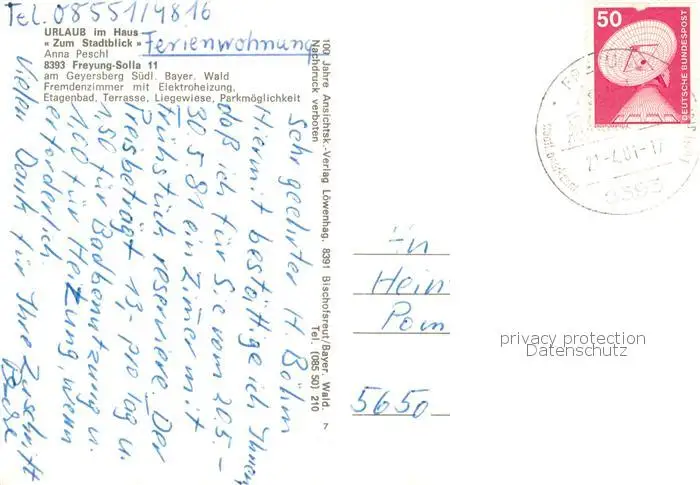 Tel. 08551/4816
URLAUB im Haus
« Zum Stadtblick » Ferienwohnung
Anna Peschl
8393 Freyung-Solla 11
am Geyersberg Südl. Bayer. Wald
Fremdenzimmer mit Elektroheizung,
Etagenbad, Terrasse, Liegewiese, Parkmöglichkeit
Sehr geehrter H. Böhm
Hiermit bestättige ich Ihnen,
daß ich für Sie vom 20.5 -
30.5.81 ein Zimer mit
Frühstück reserviere. Der
Preis beträgt 13,- pro Tag u.
1,50 für Badbenutzung u.
1,00 für Heizung, wenn
erforderlich.
Vielen Dank für Ihre Zuschrift
100 Jahre Ansichtsk.-Verlag Löwenhag, 8391 Bischofsreut/Bayer. Wald.
Nachdruck verboten Tel. (085 50) 210
7
50
DEUTSCHE BUNDESPOST
21.-4.81-17
8393
Hein
5650
privacy protection
Datenschutz